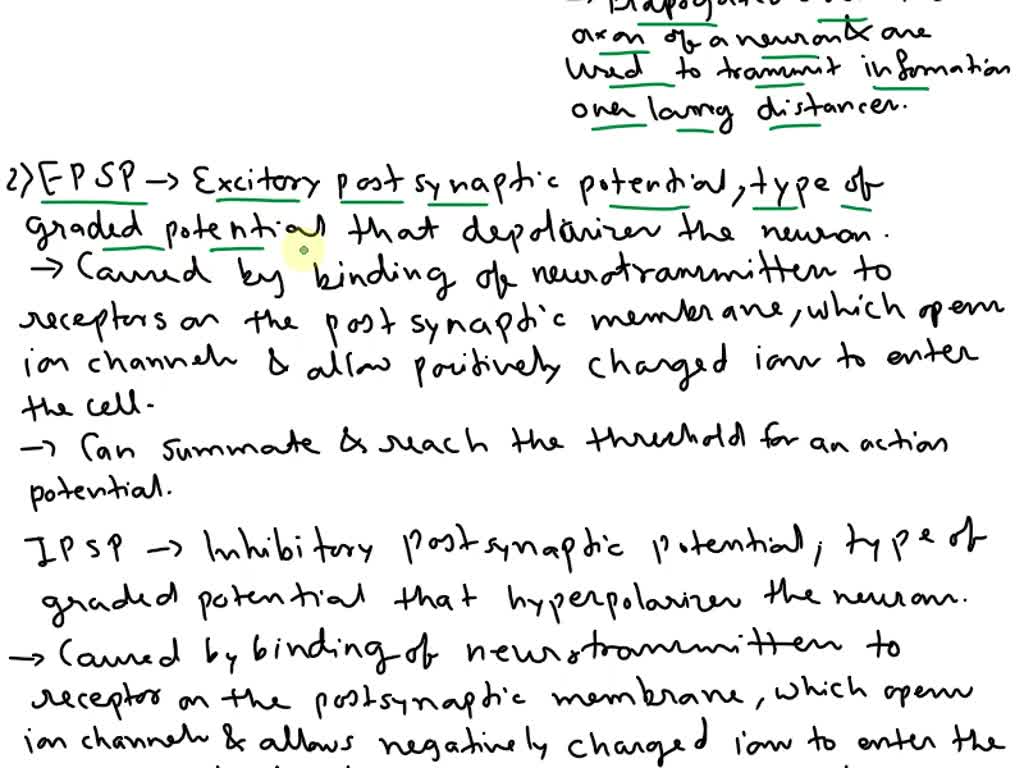 axon of a neuron & are
used to transmit information
over long distances.
2) EPSP → Excitory post synaptic potential, type of
graded potential that depolarizes the neuron.
→ Caused by binding of neurotransmitters to
receptors on the post synaptic membrane, which opens
ion channels & allow positively charged ions to enter
the cell.
→ Can summate & reach the threshold for an action
potential.
IPSP → Inhibitory postsynaptic potential, type of
graded potential that hyperpolarizes the neuron.
→ Caused by binding of neurotransmitters to
receptor on the postsynaptic membrane, which opens
ion channels & allows negatively charged ions to enter the